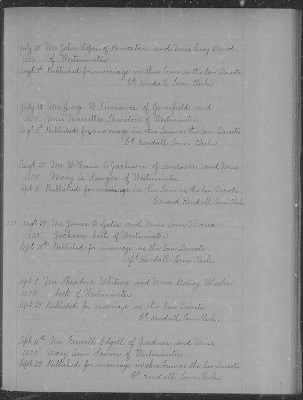 July 21 Mr John Roper of Princeton and Miss Lucy Bond
1835 of Westminster
Augt 5th Published for marriage in this Town as the law Directs
Ed Kendall Town Clerk
July 18 Mr George W. of and
1835 Miss Marietta of Westminster
Augt 5th Published for marriage in this Town as the law Directs
Ed Kendall Town Clerk
Augt 20 Mr William C Jackson of Andover and Miss
1835 Mary A. Sawyer of Westminster
Sept 5 Published for marriage in this Town as the law Directs
Edward Kendall Town Clerk
Augt 29 Mr James C. and Miss Ann Maria
1835 Jackson both of Westminster
Sept 15th Published for marriage as the law Directs
Ed Kendall Town Clerk
Sept 9 Mr Theodore Whitney and Miss Betsy Wheeler
1835 both of Westminster
Sept 24 Published for marriage as the law Directs
Ed Kendall Town Clerk
Sept 11th Mr Farwell Edgell of Gardner and Miss
1835 Mary Ann of Westminster
Sept 27 Published for marriage in this Town as the law Directs
Ed Kendall Town Clerk